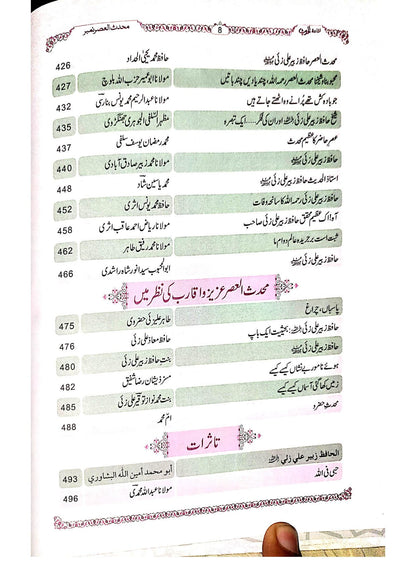 محدث العصر نمبر 8
محدث العصر حافظ زبیر علی زئی حافظ محمد یحییٰ الحداد 426
محبوبنا شیخنا محدث العصر رحمہ اللہ، چند یادیں چند باتیں مولانا ابو عمیر حزب اللہ بلوچ 427
جو بادہ کش تھے پرانے وہ اٹھتے جاتے ہیں مولانا عبدالرحیم محمد یونس بنارسی 432
شیخ حافظ زبیر علی زئی اور ان کی فکر.... ایک تبصرہ 435
عصر حاضر کا عظیم محدث محمد رمضان یوسف سلفی 437
حافظ زبیر علی زئی مولانا محمد زبیر صادق آبادی 440
استاذ الحدیث حافظ زبیر علی زئی محمد یاسین شاد 448
حافظ زبیر علی زئی رحمہ اللہ کا سانحہ وفات حافظ محمد یونس اثری 452
آہ! اک عظیم محقق حافظ زبیر علی زئی صاحب مولانا ریاض احمد عاقب اثری 458
ثبت است بر جریدہ عالم دوام ما مولانا محمد رفیق طاہر 462
حافظ زبیر علی زئی ابو المحبوب سید انور شاہ راشدی 466
محدث العصر عزیز و اقارب کی نظر میں
پاسباں، چراغ 475
حافظ زبیر علی زئی بحیثیت ایک باپ حافظ معاذ علی زئی 479
حافظ زبیر علی زئی بنت حافظ زبیر علی زئی 480
ہوئے نامور بے نشاں کیسے کیسے مسز ذیشان رضا شفیق 484
زمیں کھا گئی آسماں کیسے کیسے بنت محمد نواز توقیر علی زئی 485
محدث حضرو ام محمد 488
تاثرات
الحافظ زبير علي زئي أبو محمد أمين الله البشاوري 493
حبی فی اللہ مولانا عبداللہ محمدی 496